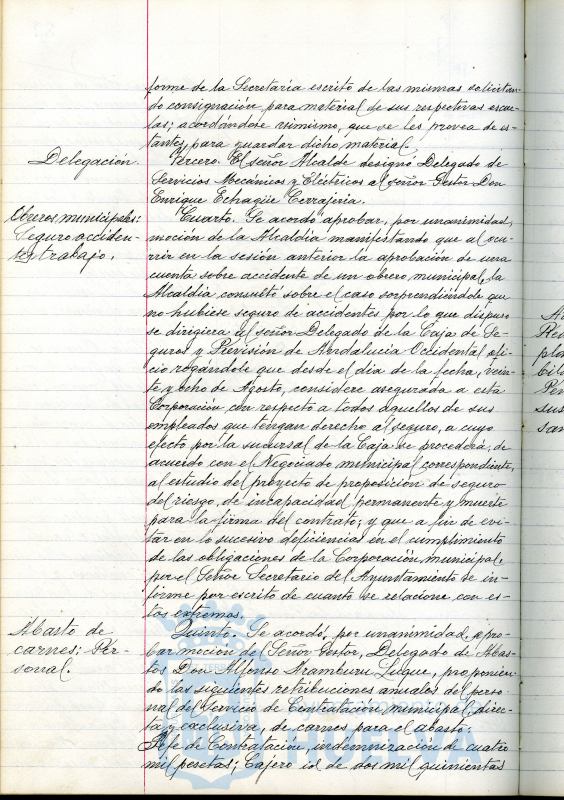 forme de la Secretaria escrito de las mismas solicitan-
do consignación para material de sus respectivas escue-
las; acordándose asimismo, que se les provea de es-
tantes para guardar dicho material.
Delegación.
Tercero. El señor Alcalde designó Delegado de
Servicios Mecánicos y Eléctricos al señor Gestor Don
Enrique Echagüe Cerrajeria.
Obreros municipales:
Seguro acciden-
tes trabajo.
Cuarto. Se acordó aprobar, por unanimidad,
moción de la Alcaldía manifestando que al ocu-
rrir en la sesión anterior la aprobación de una
cuenta sobre accidente de un obrero municipal, la
Alcaldía consultó sobre el caso sorprendiéndole que
no hubiese seguro de accidentes por lo que dispuso
se dirigiera al señor Delegado de la Caja de Se-
guros y Previsión de Andalucia Occidental ofi-
cio rogandole que desde el dia de la fecha, vein-
te y ocho de Agosto, considere asegurada a esta
Corporación con respecto a todos aquellos de sus
empleados que tengan derecho al seguro, a cuyo
efecto por la sucursal de la Caja se procederá, de
acuerdo con el Negociado municipal correspondiente,
al estudio del proyecto de proposición de seguro
del riesgo de incapacidad permanente y muerte
para la firma del contrato; y que a fin de evi-
tar en lo sucesivo deficiencias en el cumplimiento
de las obligaciones de la Corporación municipal,
por el Señor Secretario del Ayuntamiento se in-
forme por escrito de cuanto se relacione con es-
tos extremos.
Abasto de
carnes: Per-
sonal.
Quinto. Se acordó, por unanimidad, apro-
bar moción del Señor Gestor, Delegado de Abas-
tos Don Alfonso Aramburu Luque, proponien-
do las siguientes retribuciones anuales del perso-
nal del Servicio de Contratación municipal, direc-
ta y exclusiva, de carnes para el abasto:
Jefe de Contratación, indemnización de cuatro
mil pesetas; Cajero id de dos mil quinientas